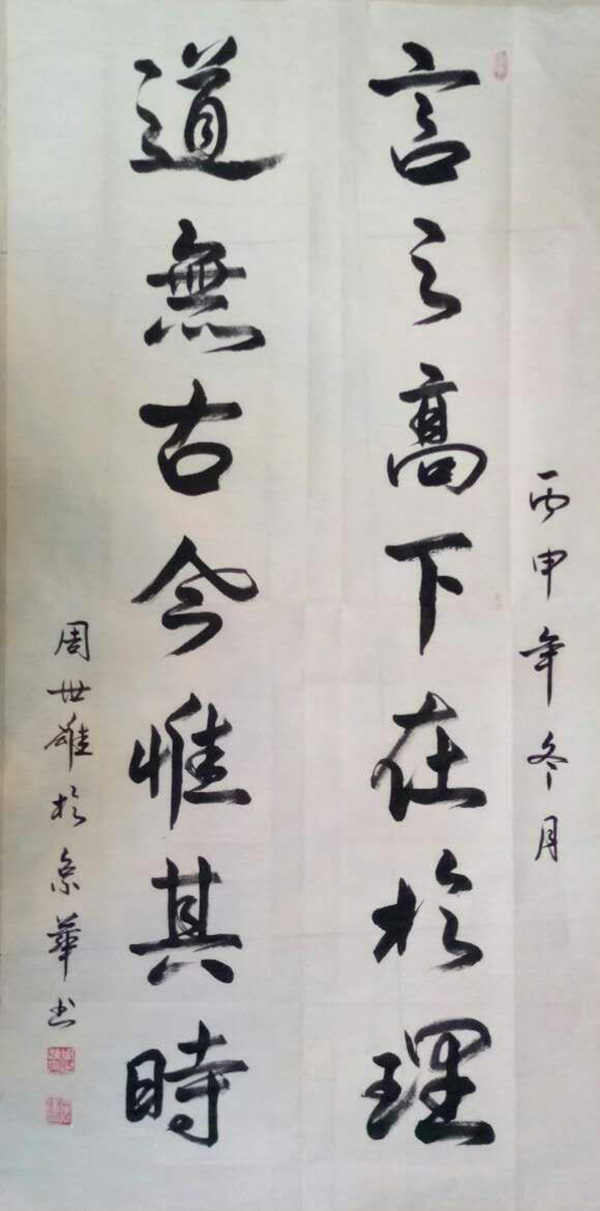 丙申年冬月
言之高下在於理
道無古今惟其時
周世雄於京華书